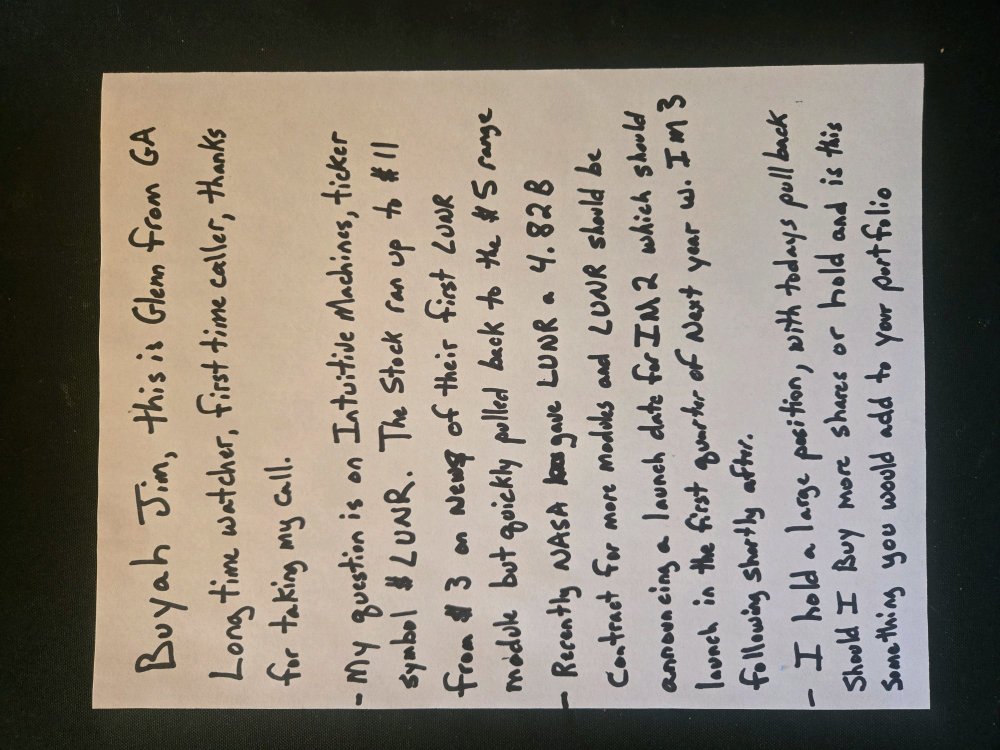 Buyah Jim, this is Glenn from GA
Long time watcher, first time caller, thanks
for taking my call.
- My question is on Intuitive Machines, ticker
symbol $LUNR. The Stock ran up to $11
from $3 on News of their first LUNR
module but quickly pulled back to the $5 range
- Recently NASA gave LUNR a 4.82B
Contract for more modules and LUNR should be
announcing a launch date for IM2 which should
launch in the first quarter of Next year w. IM3
following shortly after.
- I hold a large position, with todays pull back
Should I Buy more shares or hold and is this
Something you would add to your portfolio